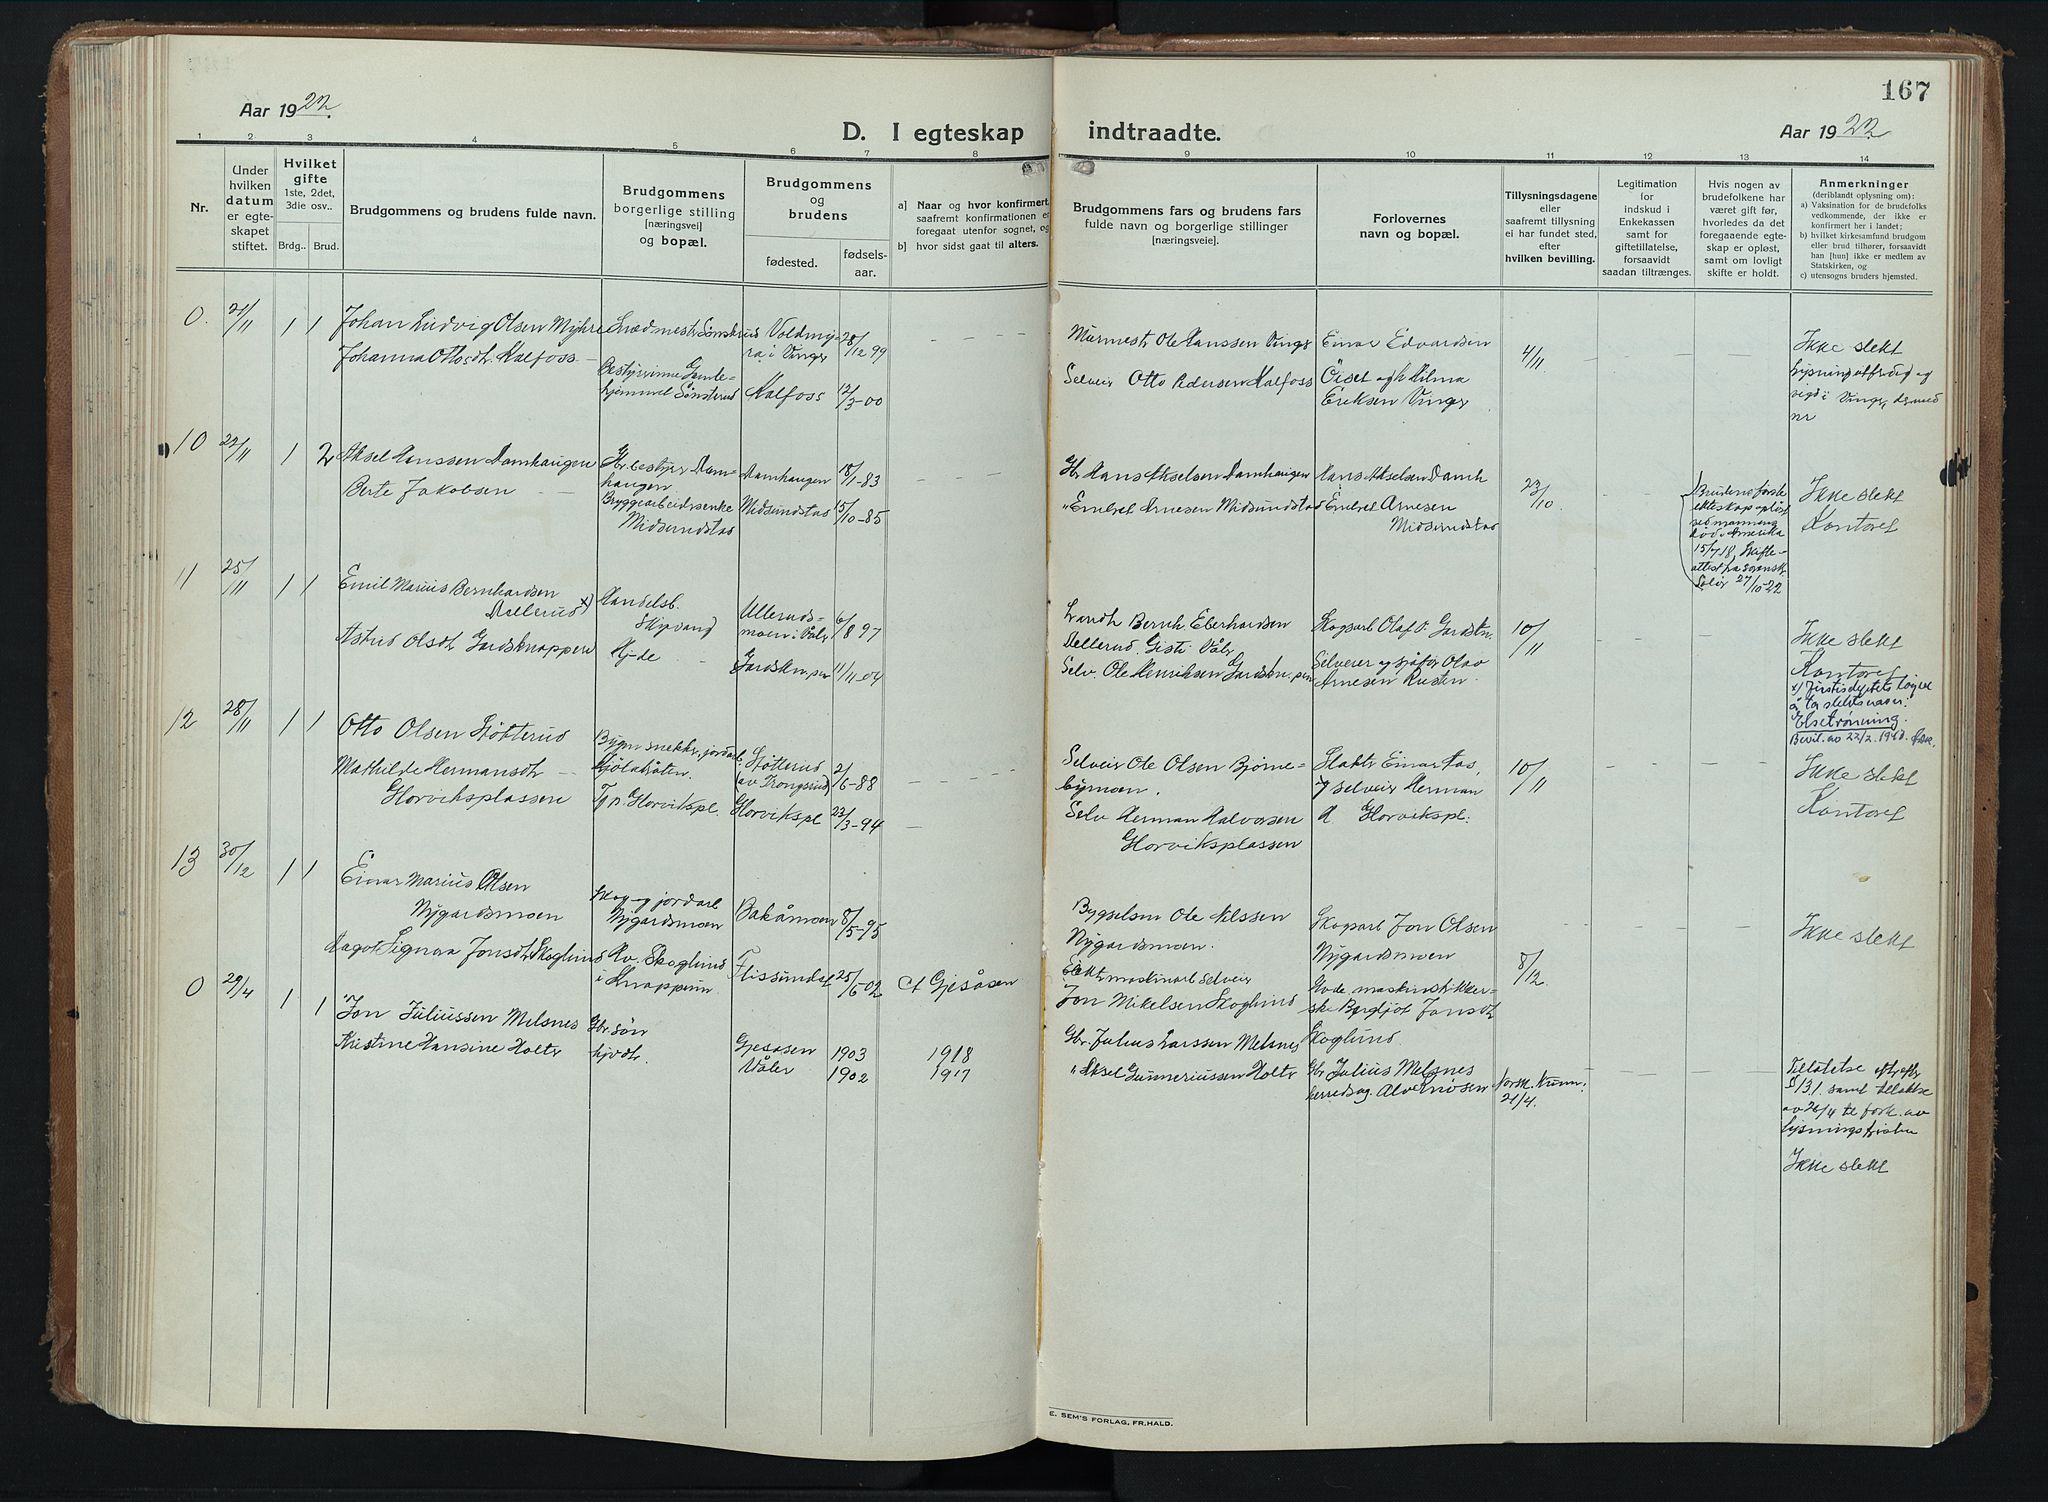 167
Aar 1922.
D. I egteskap indtraadte.
Aar 1922.
1 2 3 4 5 6 7 8 9 10 11 12 13 14
Nr.
Under
hvilken
datum
er egte-
skapet
stiftet.
Hvilket
gifte
1ste, 2det,
3die osv..
Brdg..
Brud.
Brudgommens og brudens fulde navn.
Brudgommens
borgerlige stilling
[næringsvei]
og bopæl.
Brudgommens
og
brudens
fødested.
fødsels-
aar.
a] Naar og hvor konfirmert,
saafremt konfirmationen er
foregaat utenfor sognet, og
b] hvor sidst gaat til alters.
Brudgommens fars og brudens fars
fulde navn og borgerlige stillinger
[næringsveie].
Forlovernes
navn og bopæl.
Tillysningsdagene
eller
saafremt tillysning
ei har fundet sted,
efter
hvilken bevilling.
Legitimation
for
indskud i
Enkekassen
samt for
giftetillatelse,
forsaavidt
saadan tiltrænges.
Hvis nogen av
brudefolkene har
været gift før,
hvorledes da det
foregaaende egte-
skap er opløst,
samt om lovligt
skifte er holdt.
Anmerkninger
(deriblandt oplysning om):
a) Vaksination for de brudefolks
vedkommende, der ikke er
konfirmert her i landet;
b) hvilket kirkesamfund brudgom
eller brud tilhører, forsaavidt
han [hun] ikke er medlem av
Statskirken, og
c) utensogns bruders hjemsted.
0. 21/11 1 1
Johan Ludvig Olsen Myhre
Johanna Ottosdtr. Kalfoss
Bestyrerinne Gamle-
hjemmet Sønsterud
Voldmy-
ra i Vinger
28/12 99
Kalfoss 12/3-00
Murmestr Ole Hanssen Vinger
Selveir Otto Pedersen Kalfoss
Einar Edvardsen
Öiset og h Hilma
Eriksen Vinger
4/11
Ikke slekt
10 22/11 1 2
Aksel Hanssen Damhaugen
Berte Jakobsen
Gbr.bestyrer Dam-
haugen
Bryggearbeidersenke
Midsundstad
Damhaugen 18/1-83
Midsundstad 15/10-85
Gbr Hans Akselsen Damhaugen
" Embret Arnesen Midsundstad
Hans Akselsen Damh
Embret Arnesen
Midsundstad
23/10
Brudens første
ekteskap opløst
ved mannens
død i Amerika
15/7 18. Skifte-
attest fra sorenskr.
Solør 27/10-22
Ikke slekt
Kontoret
11 25/11 1 1
Emil Marius Bernhardsen
Dællerud x)
Astrid Olsdtr Gardsknappen
Handelsb.
Skipvang
Hj-de
Ullerud-
moen i Våler
6/8 97
11/11-04
Landh Bernh Eberhardsen
Dellerud. Gisti Våler
Selv. Ole Henriksen
Skogsarb Olaf O.
Selveier og sjåfør Olav
Arnesen Rusten.
10/11
Ikke slekt
Kontoret
å ta slektsnavn:
Elsetrønning.
Bevil. av 22/2. 1940.
12 28/11 1 1
Otto Olsen Støtterud
Mathilde Hermansdtr
Horviksplassen
Bygn snekker, jordarb.
Kjølaråten.
Tj.p. Horvikspl.
Støtterud
21/6-88
Horvikspl 23/3-94
Selveir Ole Olsen Bjørne-
bymoen.
Selv Herman Halvorsen
Horviksplassen
Slakter Einar Aas,
og selveir Herman
H Horvikspl:
10/11
Ikke slekt
Kontoret
13 30/12 1 1
Einar Marius Olsen
Nygardsmoen
Magot Signora Jonsdtr Skoglund
Skog-og jordarb
Nygardsmoen
Hv. Skoglund
i Knappum
Bakåmoen 8/5-95
Flissundet 25/6-02
Bygselsm Ole Nilssen
Nygardsmoen.
Jon Mikelsen Skoglund
Skogsarb Jon Olsen
Nygardsmoen
ske Bergljot Jonsdtr
Skoglund.
8/12.
Ikke slekt
0 29/4 1 1
Jon Juliussen Melsnes
Kristine Hansine Holter
Gbr. sön
hjvdtr.
Gjesåsen 1903
Våler 1902
a Gjesåsen
1918
1917
Gbr. Julius Larssen Melsnes
" Aksel Gunneriussen Holter
Gbr Julius Melsnes
herredsag. Alvernösen
Norsk. Kunn:
21/4.
Tillatelse efter
§131. samt tillatelse
av 26/4 til fork. av
lysningsfristen
Ikke slekt
E. SEM'S FORLAG, FR.HALD.